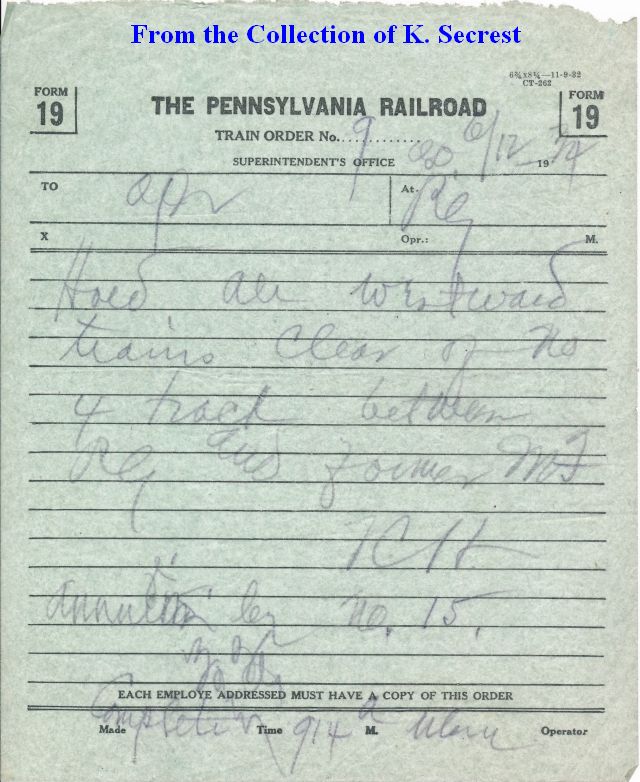 From the Collection of K. Secrest
6¾x8¼—11-9-32
CT-262
FORM
19
THE PENNSYLVANIA RAILROAD
FORM
19
TRAIN ORDER No. 9
SUPERINTENDENT'S OFFICE 6/12 19
TO Opr At- RG
X Opr.: M.
Hold all westward
trains clear of No
4 track between
RG and former MF
annulled by No. 15.
EACH EMPLOYE ADDRESSED MUST HAVE A COPY OF THIS ORDER
Made Complete Time 914 a M. Operator